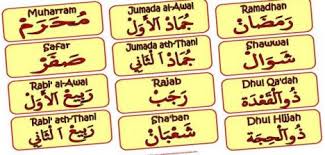 Muharram
مُحَرَّم
Safar
صَفَر
Rabi' al-Awal
رَبِيعُ الأَوَّل
Rabi' ath-Thani
رَبِيعُ الثَّانِي
Jumada al-Awal
جُمَادُ الأَوَّل
Jumada ath-Thani
جُمَادُ الثَّانِي
Rajab
رَجَب
Sha'ban
شَعْبَان
Ramadhan
رَمَضَان
Shawwal
شَوَال
Dhul Qa'dah
ذُوالْقَعْدَة
Dhul Hijjah
ذُوالْحِجَّة